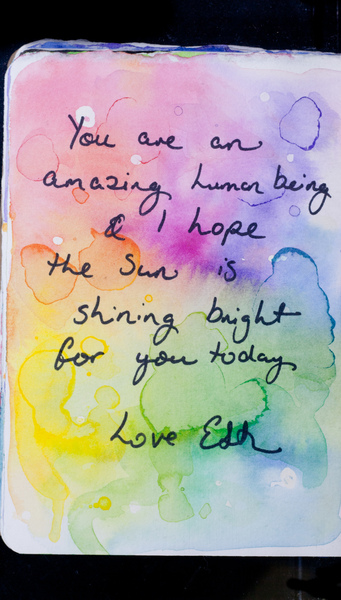 You are an
amazing human being
& I hope
the Sun is
shining bright
for you today
Love